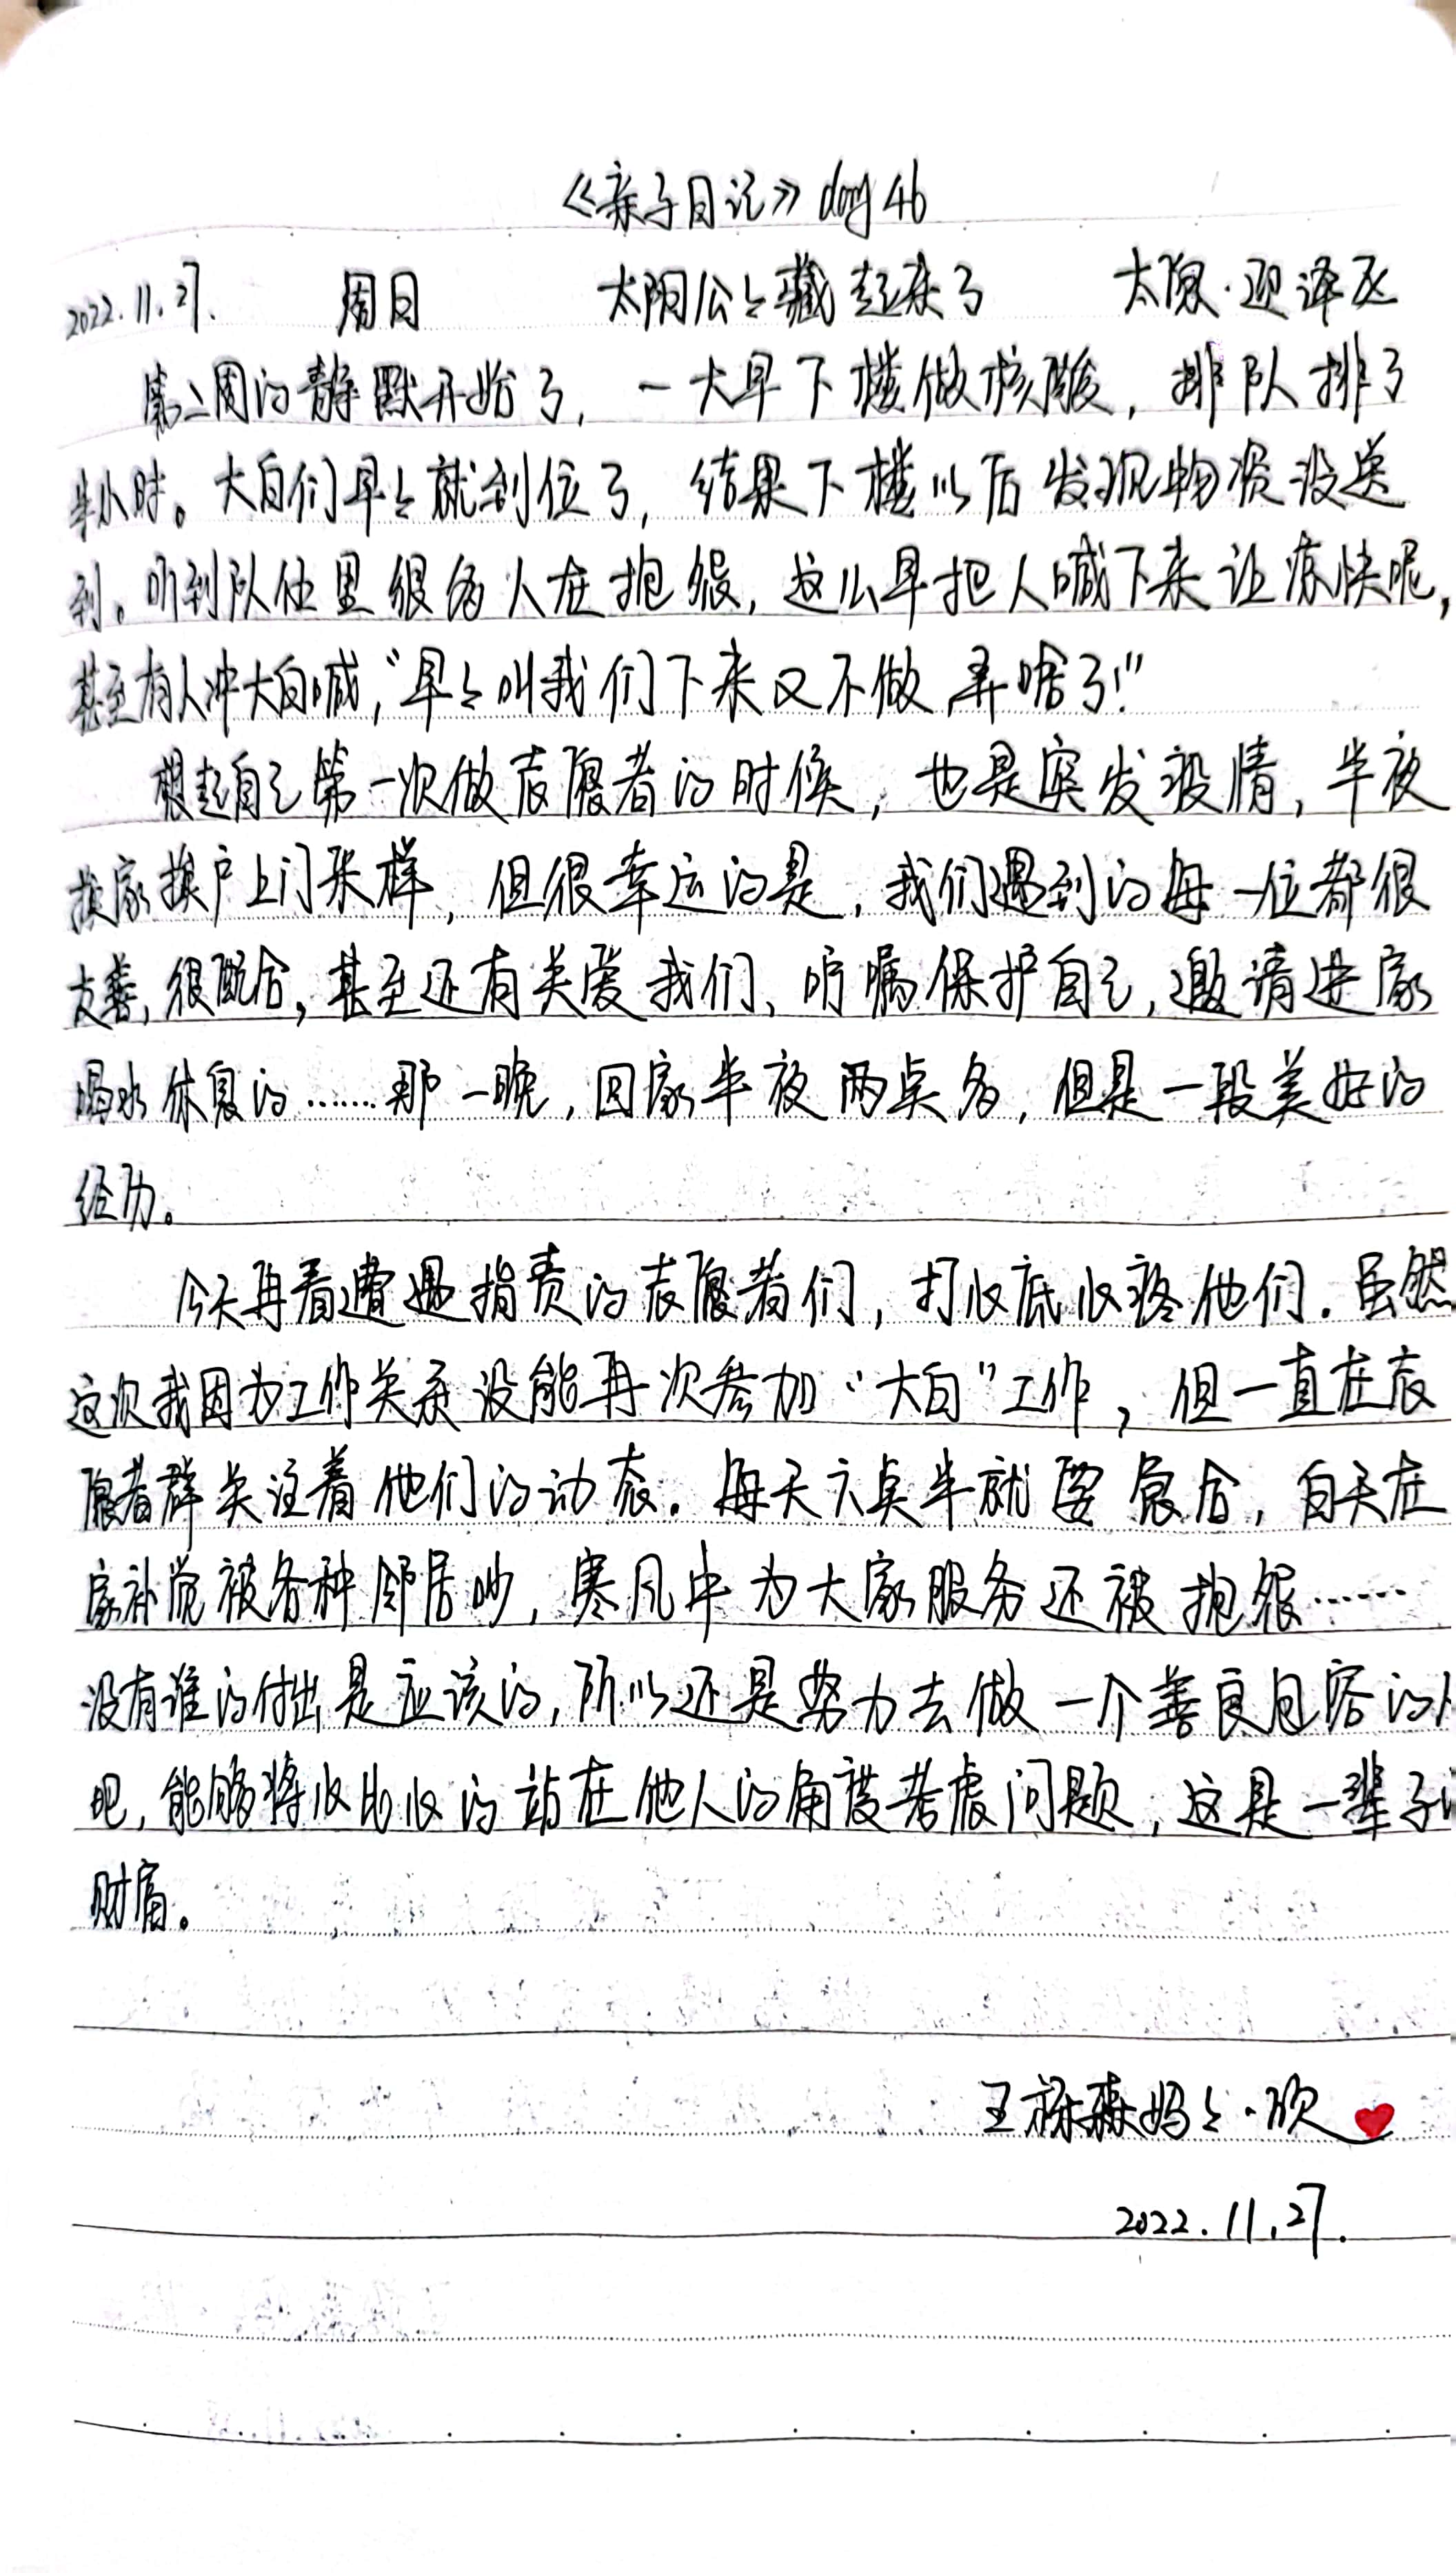 《亲子日记》day 46
2022.11.27. 周日 太阳公公藏起来了 太原·迎泽区
第二周的静默开始了，一大早下楼做核酸，排队排了
半小时。大白们早早就到位了，结果下楼以后发现物资没送
到。听到队伍里很多人在抱怨，这么早把人喊下来让凉快呢，
甚至有人冲大白喊，“早早叫我们下来又不做，弄啥了！”
想起自己第一次做志愿者的时候，也是突发疫情，半夜
挨家挨户上门采样，但很幸运的是，我们遇到的每一位都很
友善，很配合，甚至还有关爱我们、叮嘱保护自己，邀请进家
喝水休息的……那一晚，回家半夜两点多，但是一段美好的
经历。
今天再看遭遇指责的志愿者们，打心底心疼他们。虽然
这次我因为工作关系没能再次参加“大白”工作，但一直在志
愿者群关注着他们的动态。每天六点半就要集合，白天在
家补觉被各种邻居吵，寒风中为大家服务还被抱怨……
没有谁的付出是应该的，所以还是努力去做一个善良包容的人
吧，能够将心比心的站在他人的角度考虑问题，这是一辈子的
财富。
王禄森妈妈·欣
2022.11.27.